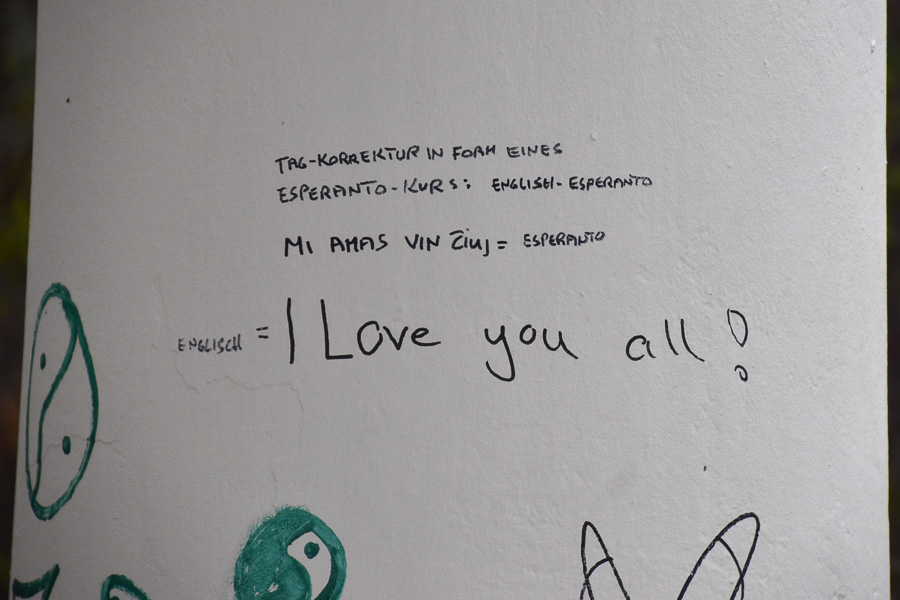 TAG-KORREKTUR IN FORM EINES
ESPERANTO-KURS: ENGLISH-ESPERANTO
MI AMAS VIN ĈIUJ = ESPERANTO
ENGLISCH = I Love you all!